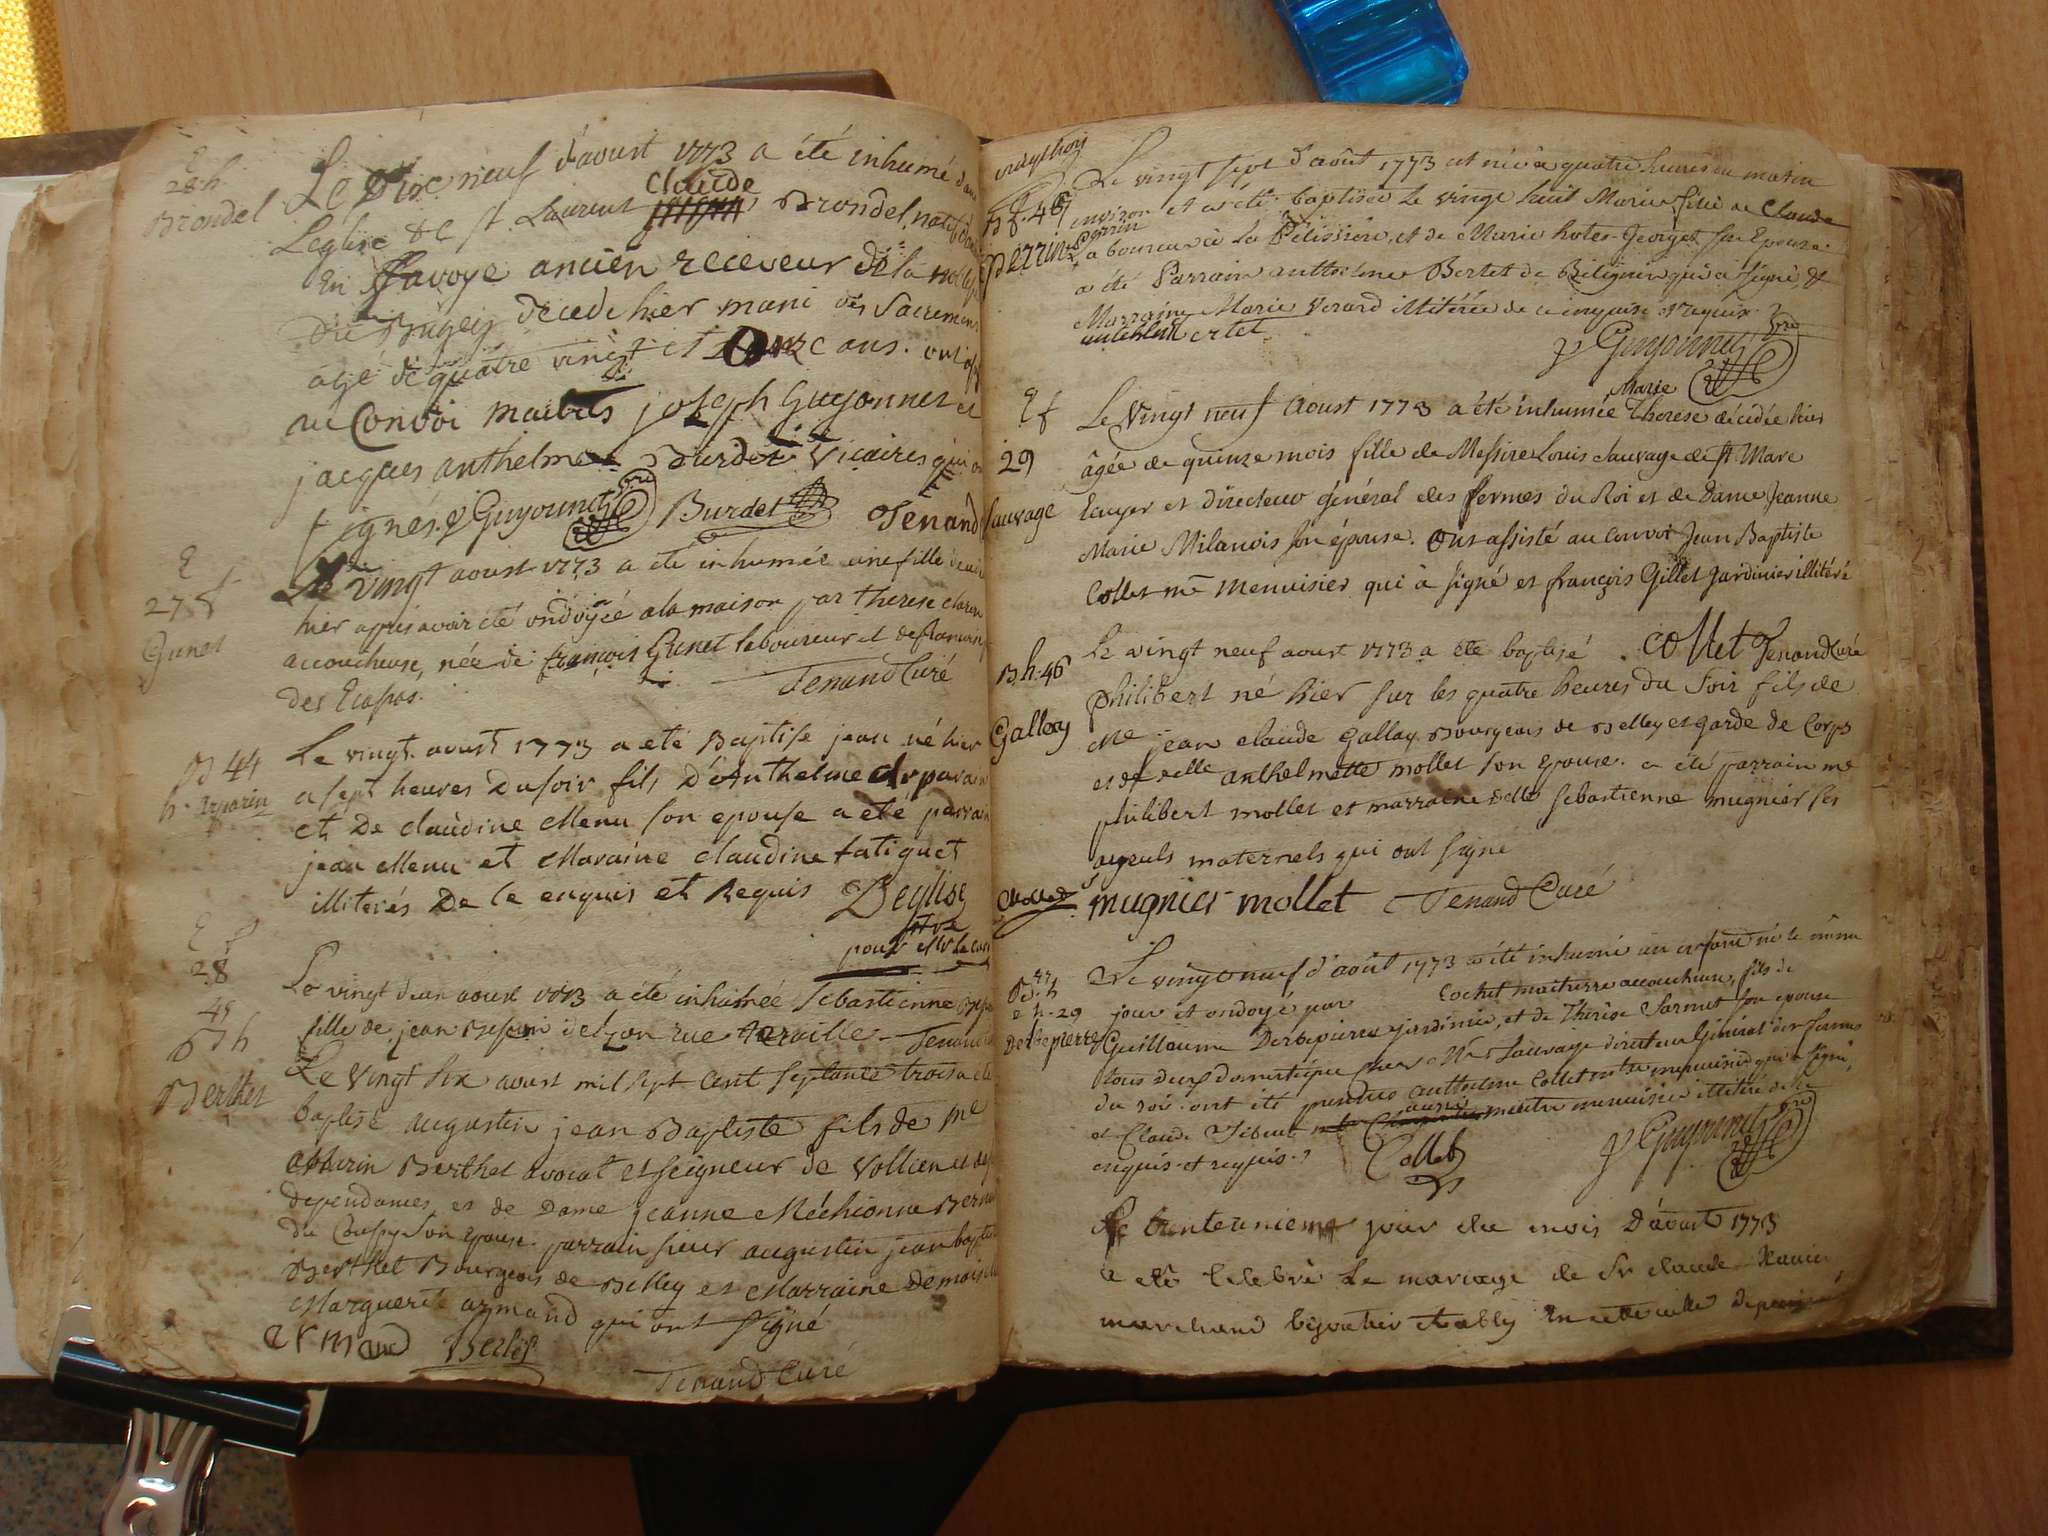 E
28 h
Brondel
Le Dixe neuf d'aoust 1773 a été inhumé dans
Leglise de st. Laurent Claude Brondel natif
En Savoye ancien receveur de la noblesse
du Bugey décedé hier muni des Sacremens
agé de quatre vingt et onze ans. ont
au Convoi maitres joseph Guyonnet et
jacques anthelme Burdet Vicaires qui
signés. J Guyonnet ptre Burdet Tenand
E
27 f
Gunet
Le vingt aoust 1773 a été inhumée une fille
hier après avoir été ondoyée a la maison par therese
accoucheuse, née de françois Gunet laboureur et de
des Ecassas. Tenand Curé
B 44
h. arparin
Le vingt aoust 1773 a eté Baptise jean né hier
a sept heures Du soir fils D'Anthelme arparin
et De claudine Menu son epouse a eté parrain
jean Menu et Maraine claudine fatiguet
illiterés De ce enquis et Requis Deglise
ptre
pour Mr le curé
E f
28
Le vingt deux aoust 1773 a été inhumée Sebastienne
fille de jean rue Tenand
45
B h
Berthet
Le Vingt six aoust mil sept cent septante trois a été
baptisé augustin jean Baptiste fils de me
Berthet avocat et seigneur de Vollien et
dependances et de Dame jeanne Méchionne
du Coussy Son epouse parrain sieur augustin jean baptiste
Berthet Bourgeois de Belley et Marraine Demoiselle
Marguerite armand qui ont signé
armand Berthet
Tenand Curé
B f. 46
perrin
Le vingt sept d'août 1773 est née à quatre heures du matin
environ et a été baptisée le vingt huit Marie fille de Claude
Perrin
Laboureur à La Pelissière, et de Marie Georget son Epouse.
a été Parrain anthelme Bertet de Bilignin qui a signé, et
Marraine Marie Verard illitérée de ce enquise et requise.
antehlmt ertet J Guyonnet ptre
E f
29
Sauvage
Marie
Le Vingt neuf Aoust 1773 a été inhumée therese décédée hier
âgée de quinze mois fille de Messire Louis Sauvage de St Marc
Ecuyer et Directeur général des fermes du Roi et de Dame Jeanne
Marie Milanois son épouse. Ont assisté au convoi Jean Baptiste
Collet me Menuisier qui à signé et françois Gillet jardinier illitéré
collet Tenand Curé
B. h. 46
Gallay
Le vingt neuf aoust 1773 a été baptisé
philibert né hier sur les quatre heures du Soir fils de
Me jean claude Gallay Bourgeois de Belley et garde de Corps
et de delle anthelmette mollet son epouse. a été parrain me
philibert mollet et marraine delle sebastienne mugnier ses
ayeuls maternels qui ont signé
Mollet s mugnier mollet Tenand Curé
47
B. h
E h. 29
Derbepierre
Le vingt neuf d'août 1773 a été inhumé un enfant né le même
jour et ondoyé par Cochet maitresse accoucheuse, fils de
Guillaume Derbepierre jardinier, et de Thérèse Sarmet son epouse
tous deux domestiques chez Mr Sauvage directeur Général des fermes
du roi. ont été présents anthelme Collet maitre menuisier qui a signé,
et Claude aussi maitre menuisier illitéré de ce
enquis et requis. Collet J Guyonnet ptre
Le trente unieme jour du mois D'avoust 1773
a eté celebré Le mariage de Sr claude Xavier
marchand bijoutier etably En cette ville